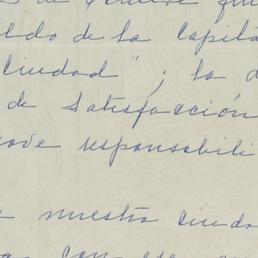 de
ldo de la Capita
Ciudad"; la d
de satisfacción
responsabili
nuestra ciuda
con